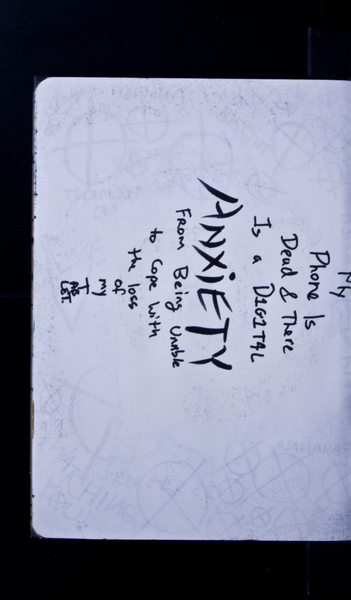 My
Phone Is
Dead & There
Is a D1G1T4L
ANXiETY
From Being Unable
to Cope with
the loss
of
my
T